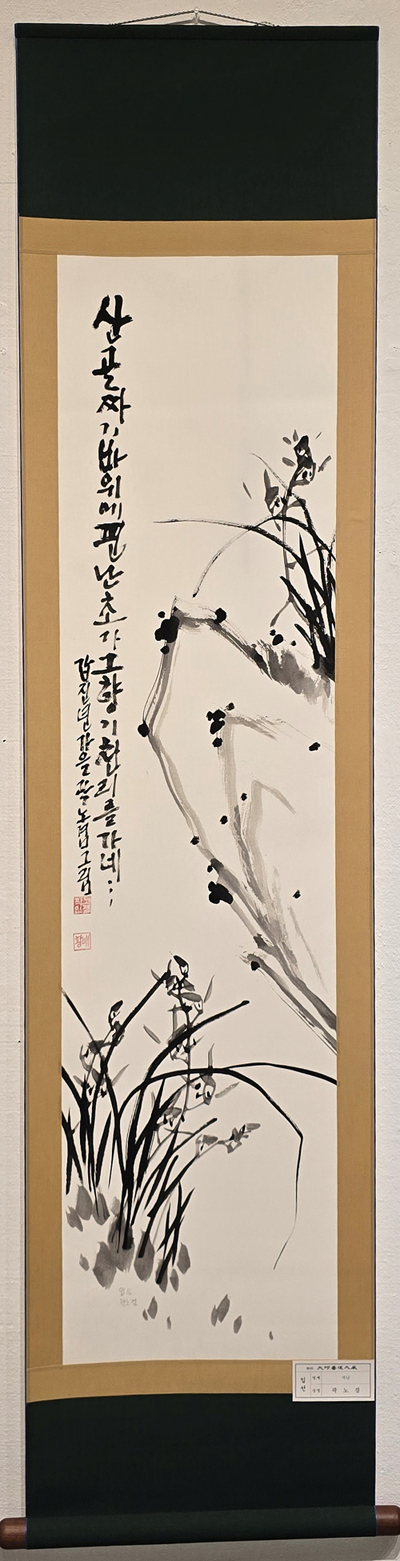 산골짜기바위에핀난초가그향기천리를가네
갑진년가을
그림
입선